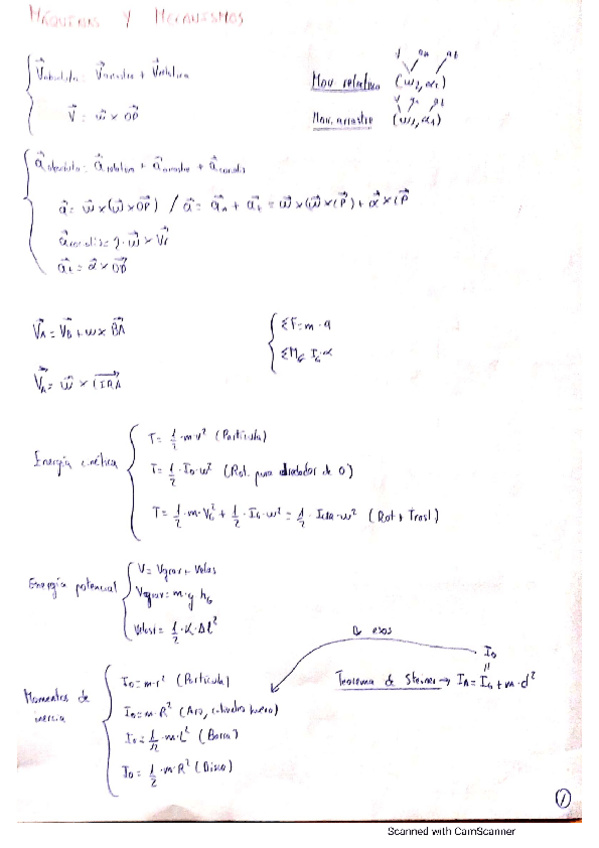 MÁQUINAS Y MECANISMOS
V⃗absoluta = V⃗arrastre + V⃗relativa
V⃗ = w⃗ × OP⃗
v an at
Mov relativo (w₂, α₂)
v an at
Mov. arrastre (w₁, α₁)
a⃗absoluta = a⃗relativa + a⃗arrastre + a⃗coriolis
a⃗ = w⃗ × (w⃗ × OP⃗) / a⃗ = a⃗n + a⃗t = w⃗ × (w⃗ × IP⃗) + α⃗ × IP⃗
a⃗coriolis = 2 · w⃗ × V⃗r
a⃗t = α⃗ × OP⃗
V⃗A = V⃗B + w × BA⃗
ΣF = m · a
ΣMG IG · α
V⃗A = w⃗ × CIRA⃗
Energía cinética
T = 1/2 · m v² (Partícula)
T = 1/2 · I₀ · w² (Rot. pura alrededor de O)
T = 1/2 · m · VG² + 1/2 · IG · w² = 1/2 · ICIR · w² (Rot + Trasl)
Energía potencial
V = Vgrav + Velas
Vgrav = m · g hG
Velast = 1/2 · K · Δl²
esos
IG
=
Teorema de Steiner → IA = IG + m · d²
Momentos de inercia
I₀ = m · r² (Partícula)
I₀ = m · R² (Aro, cilindro hueco)
I₀ = 1/12 · m · L² (Barra)
I₀ = 1/2 · m · R² (Disco)
1
Scanned with CamScanner